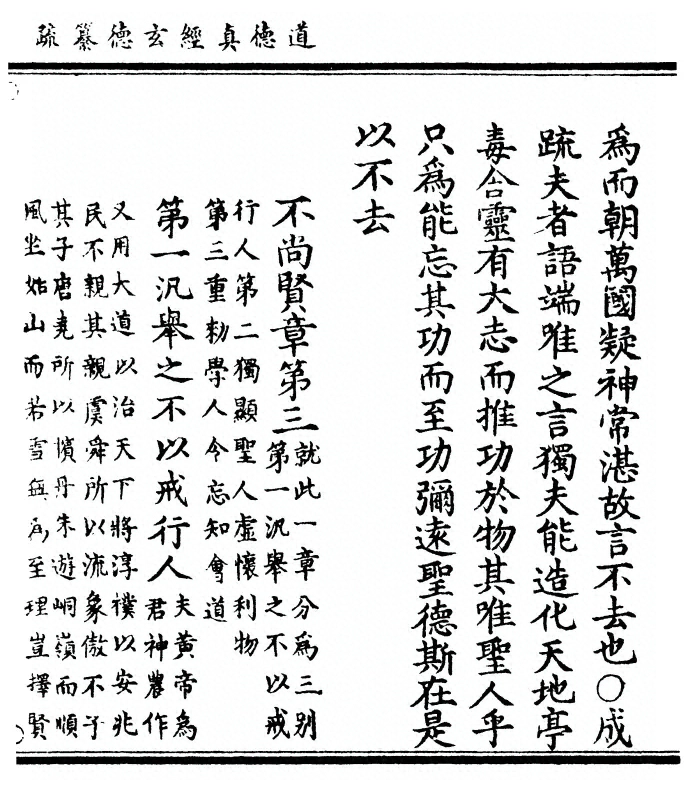 道德真經玄德纂疏
為而朝萬國凝神常湛故言不去也○成
疏夫者語端唯之言獨夫能造化天地亭
毒含靈有大志而推功於物其唯聖人乎
只為能忘其功而至功彌遠聖德斯在是
以不去
不尚賢章第三就此一章分為三別
第一汎舉之不以戒
行人第二獨顯聖人虛懷利物
第三重勑學人令忘知會道
第一汎舉之不以戒行人夫黃帝為
君神農作
又用大道以治天下將淳樸以安兆
民不親其親虞舜所以流象傲不子
其子唐堯所以擯丹朱遊峒嶺而順
風坐姑山而若雪無為至理豈擇賢